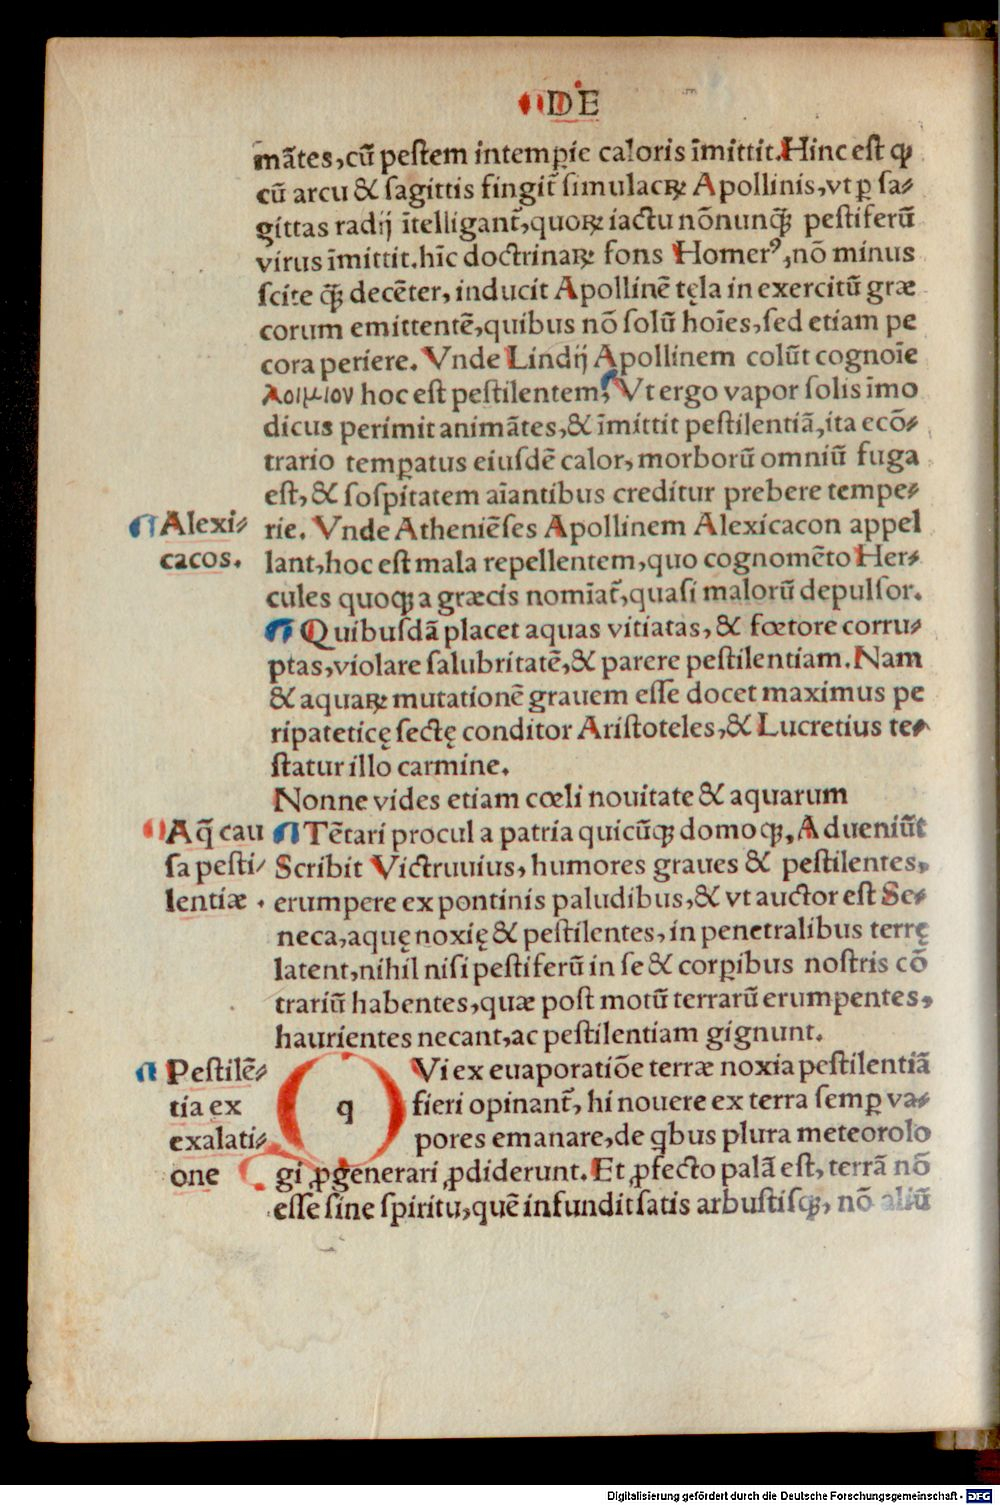 DE
mātes, cū pestem intemꝑie caloris īmittit. Hinc est ꝙ
cū arcu & sagittis fingit̃ simulacꝝ Apollinis, vt ꝑ sa⸗
gittas radij ītelligant̃, quoꝝ iactu nōnunꝗ̃ pestiferū
virus īmittit. hīc doctrinaꝝ fons Homerꝰ, nō minus
scite ꝗ̃ decēter, inducit Apollinē tęla in exercitū græ
corum emittentē, quibus nō solū hoīes, sed etiam pe
cora periere. Vnde Lindij Apollinem colūt cognoīe
λοιμιον hoc est pestilentem, Vt ergo vapor solis īmo
dicus perimit animātes, & īmittit pestilentiā, ita ecō⸗
trario temꝑatus eiusdē calor, morborū omniū fuga
est, & sospitatem aīantibus creditur prebere tempe⸗
Alexi⸗
cacos.
rie. Vnde Atheniēses Apollinem Alexicacon appel
lant, hoc est mala repellentem, quo cognomēto Her⸗
cules quoqꝫ a græcis nomīat̃, quasi malorū depulsor.
Quibusdā placet aquas vitiatas, & fœtore corru⸗
ptas, violare salubritatē, & parere pestilentiam. Nam
& aquaꝝ mutationē grauem esse docet maximus pe
ripateticę sectę conditor Aristoteles, & Lucretius te⸗
statur illo carmine.
Nonne vides etiam cœli nouitate & aquarum
Aq̃ cau
sa pesti⸗
lentiæ.
Tētari procul a patria quicūqꝫ domoqꝫ, Adueniūt
Scribit Victruuius, humores graues & pestilentes,
erumpere ex pontinis paludibus, & vt auctor est Se⸗
neca, aquę noxię & pestilentes, in penetralibus terrę
latent, nihil nisi pestiferū in se & corꝑibus nostris cō
trariū habentes, quæ post motū terrarū erumpentes,
haurientes necant, ac pestilentiam gignunt.
Pestilē⸗
tia ex
exalati⸗
one
QVi ex euaporatiōe terræ noxia pestilentiā
fieri opinant̃, hi nouere ex terra semꝑ va⸗
pores emanare, de ꝗbus plura meteorolo
gi ꝓgenerari ꝓdiderunt. Et ꝓfecto palā est, terrā nō
esse sine spiritu, quē infundit satis arbustisqꝫ, nō aliū
Digitalisierung gefördert durch die Deutsche Forschungsgemeinschaft - DFG